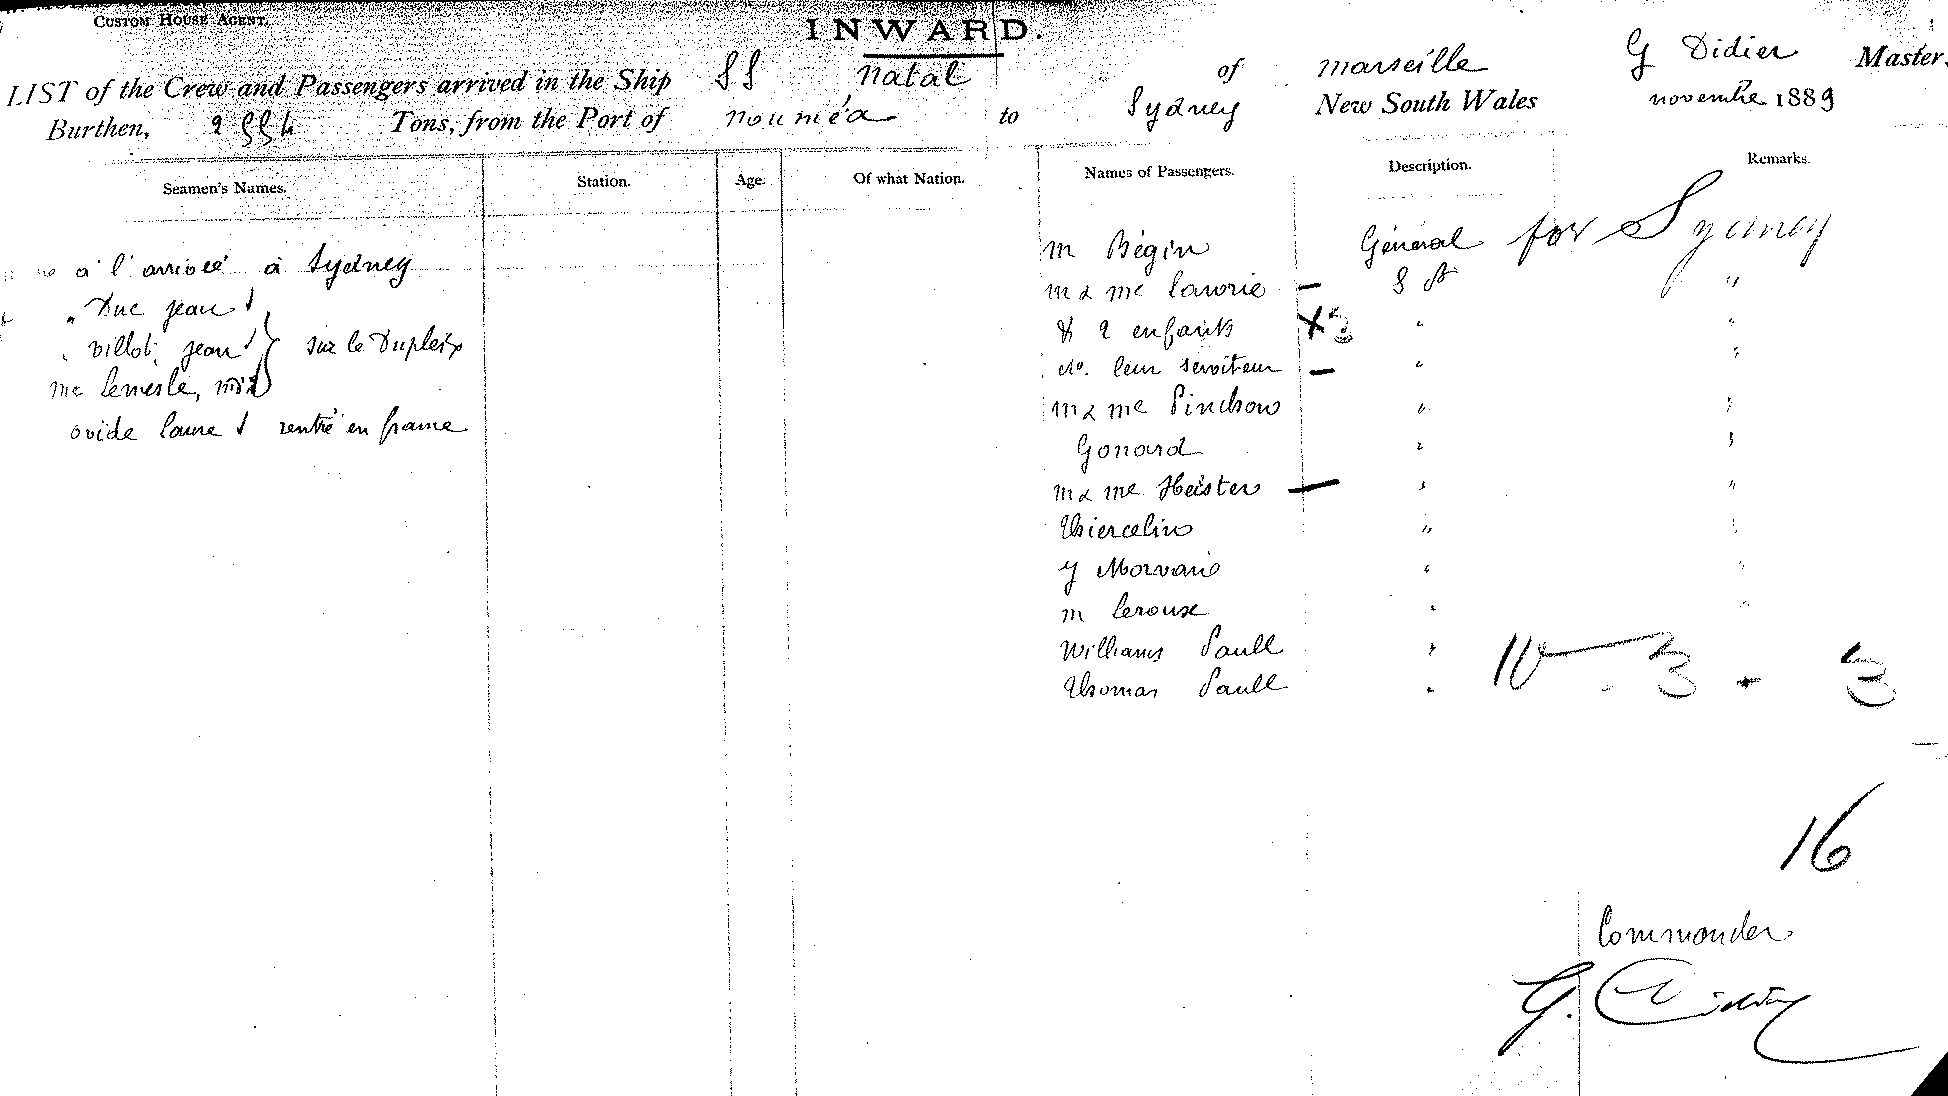 CUSTOM HOUSE AGENT.
INWARD.
LIST of the Crew and Passengers arrived in the Ship SS Natal of Marseille G Didier Master,
Burthen, Tons, from the Port of Nouméa to Sydney New South Wales novembre 1889
Seamen's Names. Station. Age. Of what Nation. Names of Passengers. Description. Remarks.
M Bégin Général for Sydney
à l'arrivée à Sydney
M & Me Lawrie — "
" Duc Jean
& 2 enfants X 3 " "
" Villot, Jean } sur le Dupleix
do. leur serviteur — " "
Me Lemesle,
M & Me Pinchon " "
Ovide Laure rentré en france
Gonard " "
M & Me Heister — " "
Thiercelin " "
y Morvan " "
M Leroux " "
Williams Paull " 10 - 3 - 3
Thomas Paull "
16
Commander
G. Didier